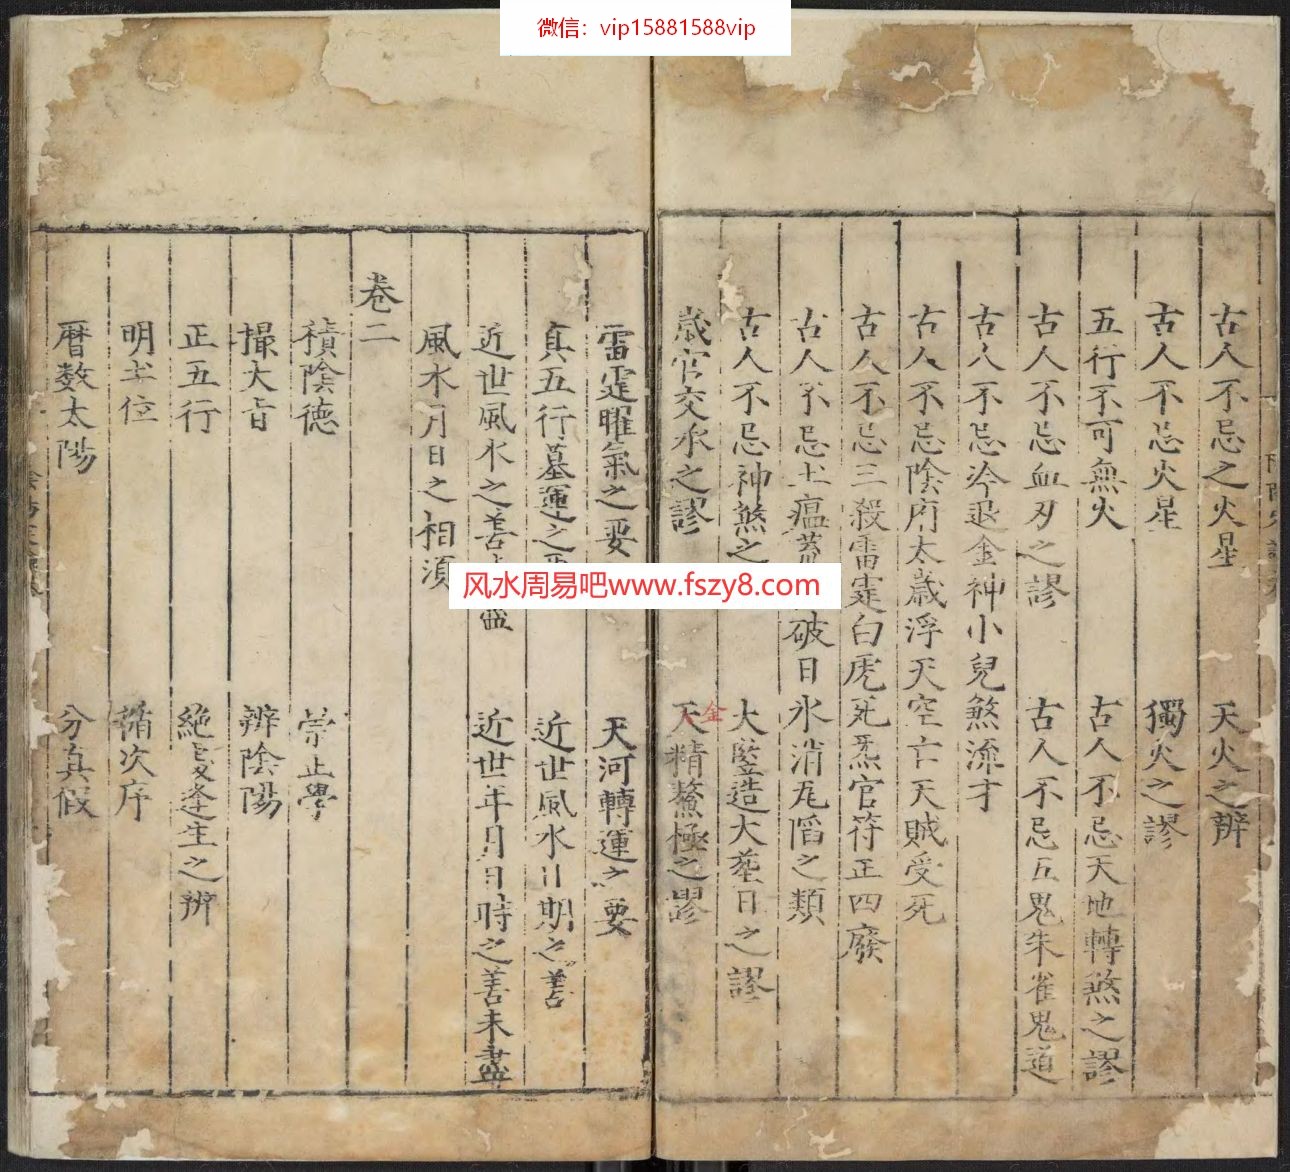 微信：vip15881588vip
古人不忌之火星 天火之辨
古人不忌火星 獨火之謬
五行不可無火 古人不忌天地轉煞之謬
古人不忌血刃之謬 古人不忌五鬼朱雀鬼道
古人不忌冷退金神小兒煞流才
古人不忌陰府太歲浮天空亡天賊受死
古人不忌三殺雷霆白虎死炁官符正四廢
古人不忌土瘟 破日氷消瓦陷之類
古人不忌神煞之 大䥫造大葬日之謬
歲官交承之謬 天精鰲極之謬
金
雷霆曜氣之要 天河轉運之要
真五行墓運之 近世風水日期之善
近世風水之善 盡 近世年月日時之善未盡
風水月日之相須
卷二
積陰德 崇正學
撮大旨 辨陰陽
正五行 絶處逢生之辨
明坐位 循次序
曆數太陽 分真假
风水周易吧www.fszy8.com